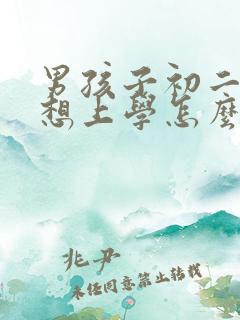 男孩子初二
想上學怎麼
兆尹
未经同意禁止转载